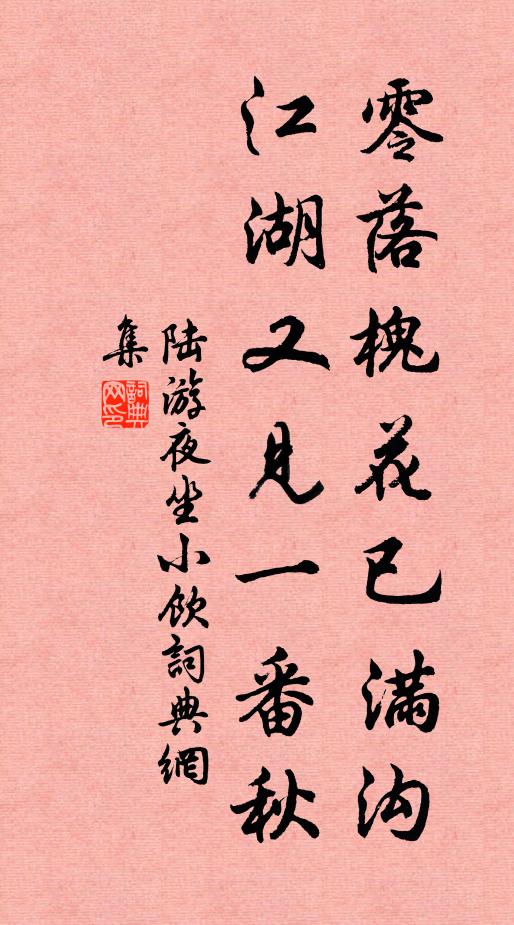 零落槐花已满沟
江湖又见一番秋
陆游夜坐小饮詞典網
集
詞典网印